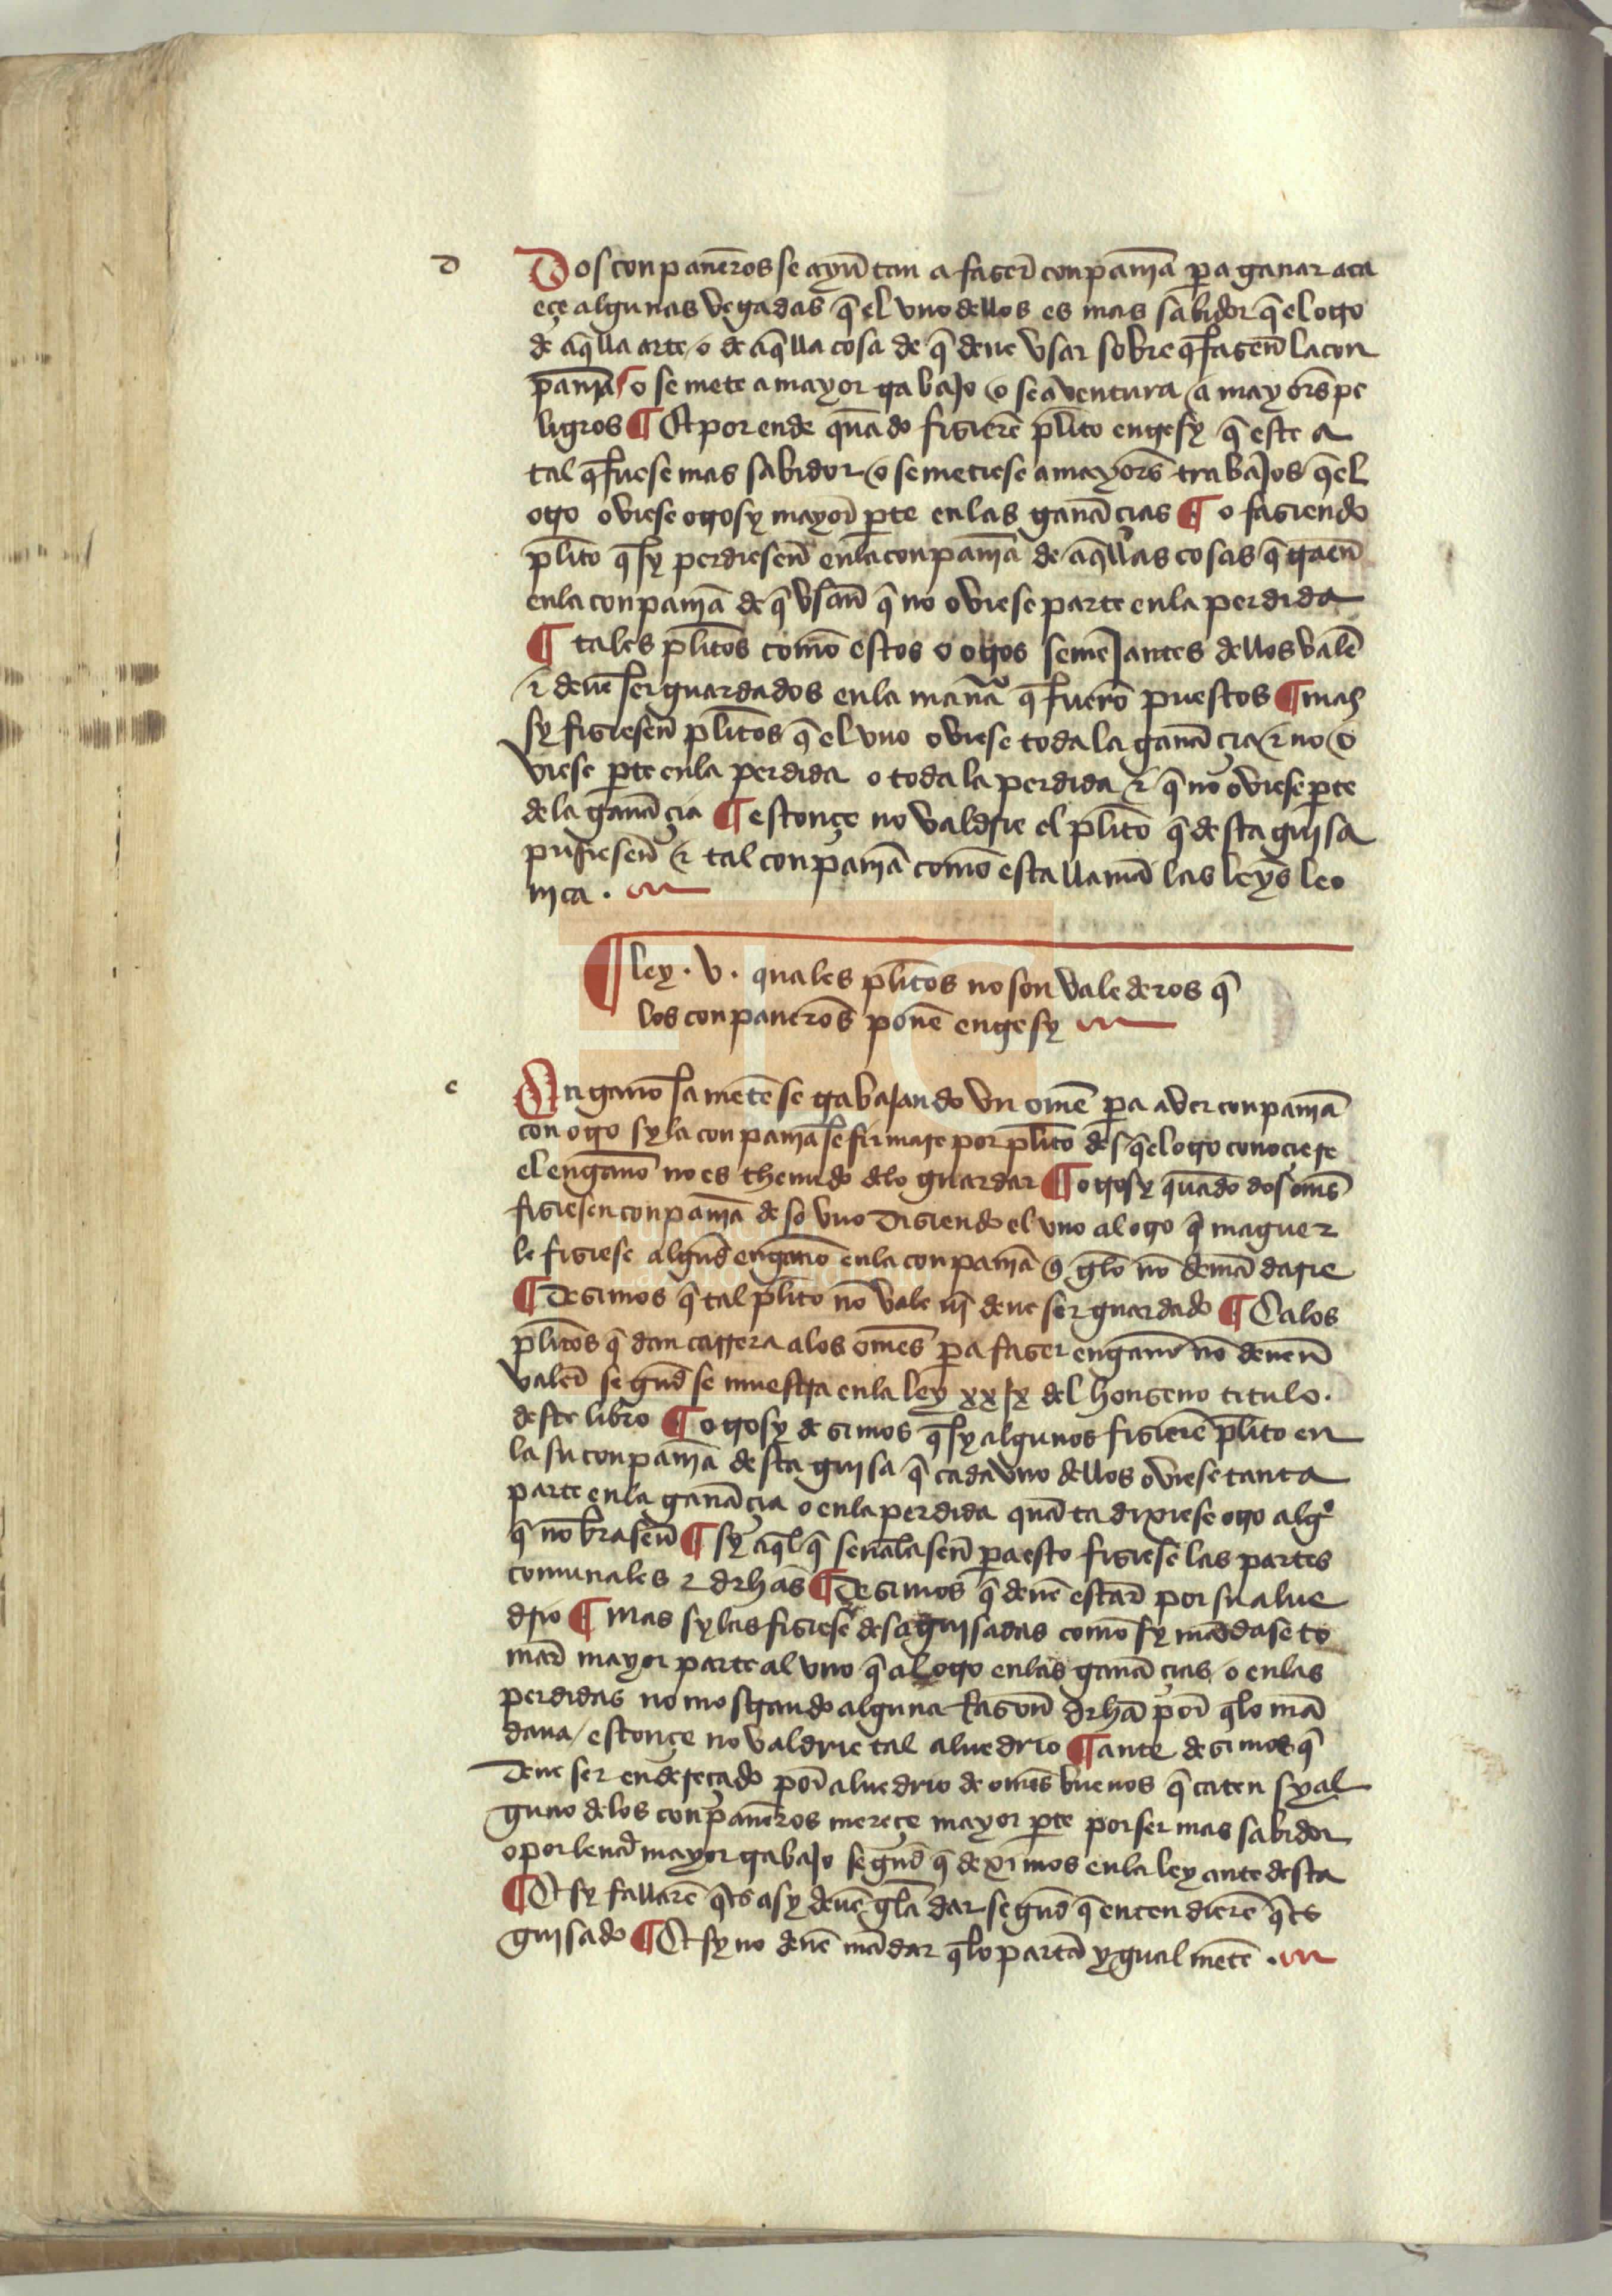 d
Dos conpaneros se ayũtan a faserͥ conpanıã pa ganar aca
eçe algunas vegadas q̃ el vno dellos es mas sabidor q̃ el otro
de aq̃lla arte o de aq̃lla cosa de q̃ deue vsar sobre q̃ fasen̄ la con
panıã ¶ o se mete a mayor trabajo o se aventura a mayors̃ pe
ligros ¶ Et por ende quãdo fisierẽ plito entresy q̃ este a
tal q̃ fuese mas sabidor o se metiese a mayors̃ trabajos q̃ el
otro oviese otrosy mayor̄ pte en las ganãçias ¶ o fasiendo
plito q̃ sy perdiesen̄ en la conpanıã de aq̃llas cosas q̃ traen̄
en la conpanıã de q̃ vsan̄ q̃ no oviese parte en la perdida
¶ tales plitos comõ estos o otros semejantes dellos valẽ
τ deuẽ ser guardados en la manã q̃ fuerõ puestos ¶ mas
sy fisiesen̄ plitos q̃ el vno oviese toda la ganãçia τ no o
viese pte en la perdida o toda la perdida τ q̃ no oviese pte
de la ganãçia ¶ estonçe no valdrie el plito q̃ desta guisa
pusiesen̄ τ tal conpanıã comõ esta llamã las leyes leo
nica .
¶ ley . v . quales plitos no son valederos q̃
los conpaneros̃ ponẽ entresy
e
Enganosamẽte se trabajando vn omẽ pa aver conpanıã
con otro sy la conpanıã se firmare por plito des q̃ el otro conoçiere
el engano no es thenudo de lo guardar ¶ otrosy quãdo dos oms̃
fisiesen conpanıã de so vno disiendo el vno al otro q̃ maguer
le fisiese algud̃ engano en la conpanıã q̃ glo nõ demãdarie
¶ Desimos q̃ tal plito nõ vale nı̃ deue ser guardado ¶ Ca los
plitos q̃ dan carrera a los omes̃ pa faser engano nõ deuen̄
valer̄ segud̃ se muestra en la ley xxıx del honseno titulo .
deste libro ¶ otrosy desimos q̃ sy algunos fisierẽ plito en
la su conpanıã desta guisa q̃ cada vno dellos oviese tanta
parte en la ganãçia o en la perdida quãta dixiese otro algo
q̃ nõbrasen̄ ¶ sy aq̃l q̃ senalasen̄ pa esto fisiese las partes
comunales τ drhãs ¶ Desimos q̃ deuẽ estar̄ por su alue
drio ¶ mas sy las fisiesẽ desaguisadas comõ sy mãdase to
mar̄ mayor parte al vno q̃ al otro en las ganãçias o en las
perdidas no mostrando alguna rason̄ drhã por̄ q̃ lo mã
daua / estonçe no valdrie tal aluedrio ¶ ante desimos q̃
deue ser endereçado por̄ aluedrio de oms̃ buenos q̃ caten sy al
guno de los conpaneros mereçe mayor pte por ser mas sabidor
o por leuar̄ mayor trabajo segud̃ q̃ deximos en la ley ante desta
¶ Et sy fallarẽ q̃ es asy deuẽ gla dar segud̃ q̃ entendierẽ q̃ es
guisado ¶ Et sy no deuẽ mãdar q̃ lo partã ygualmẽte .